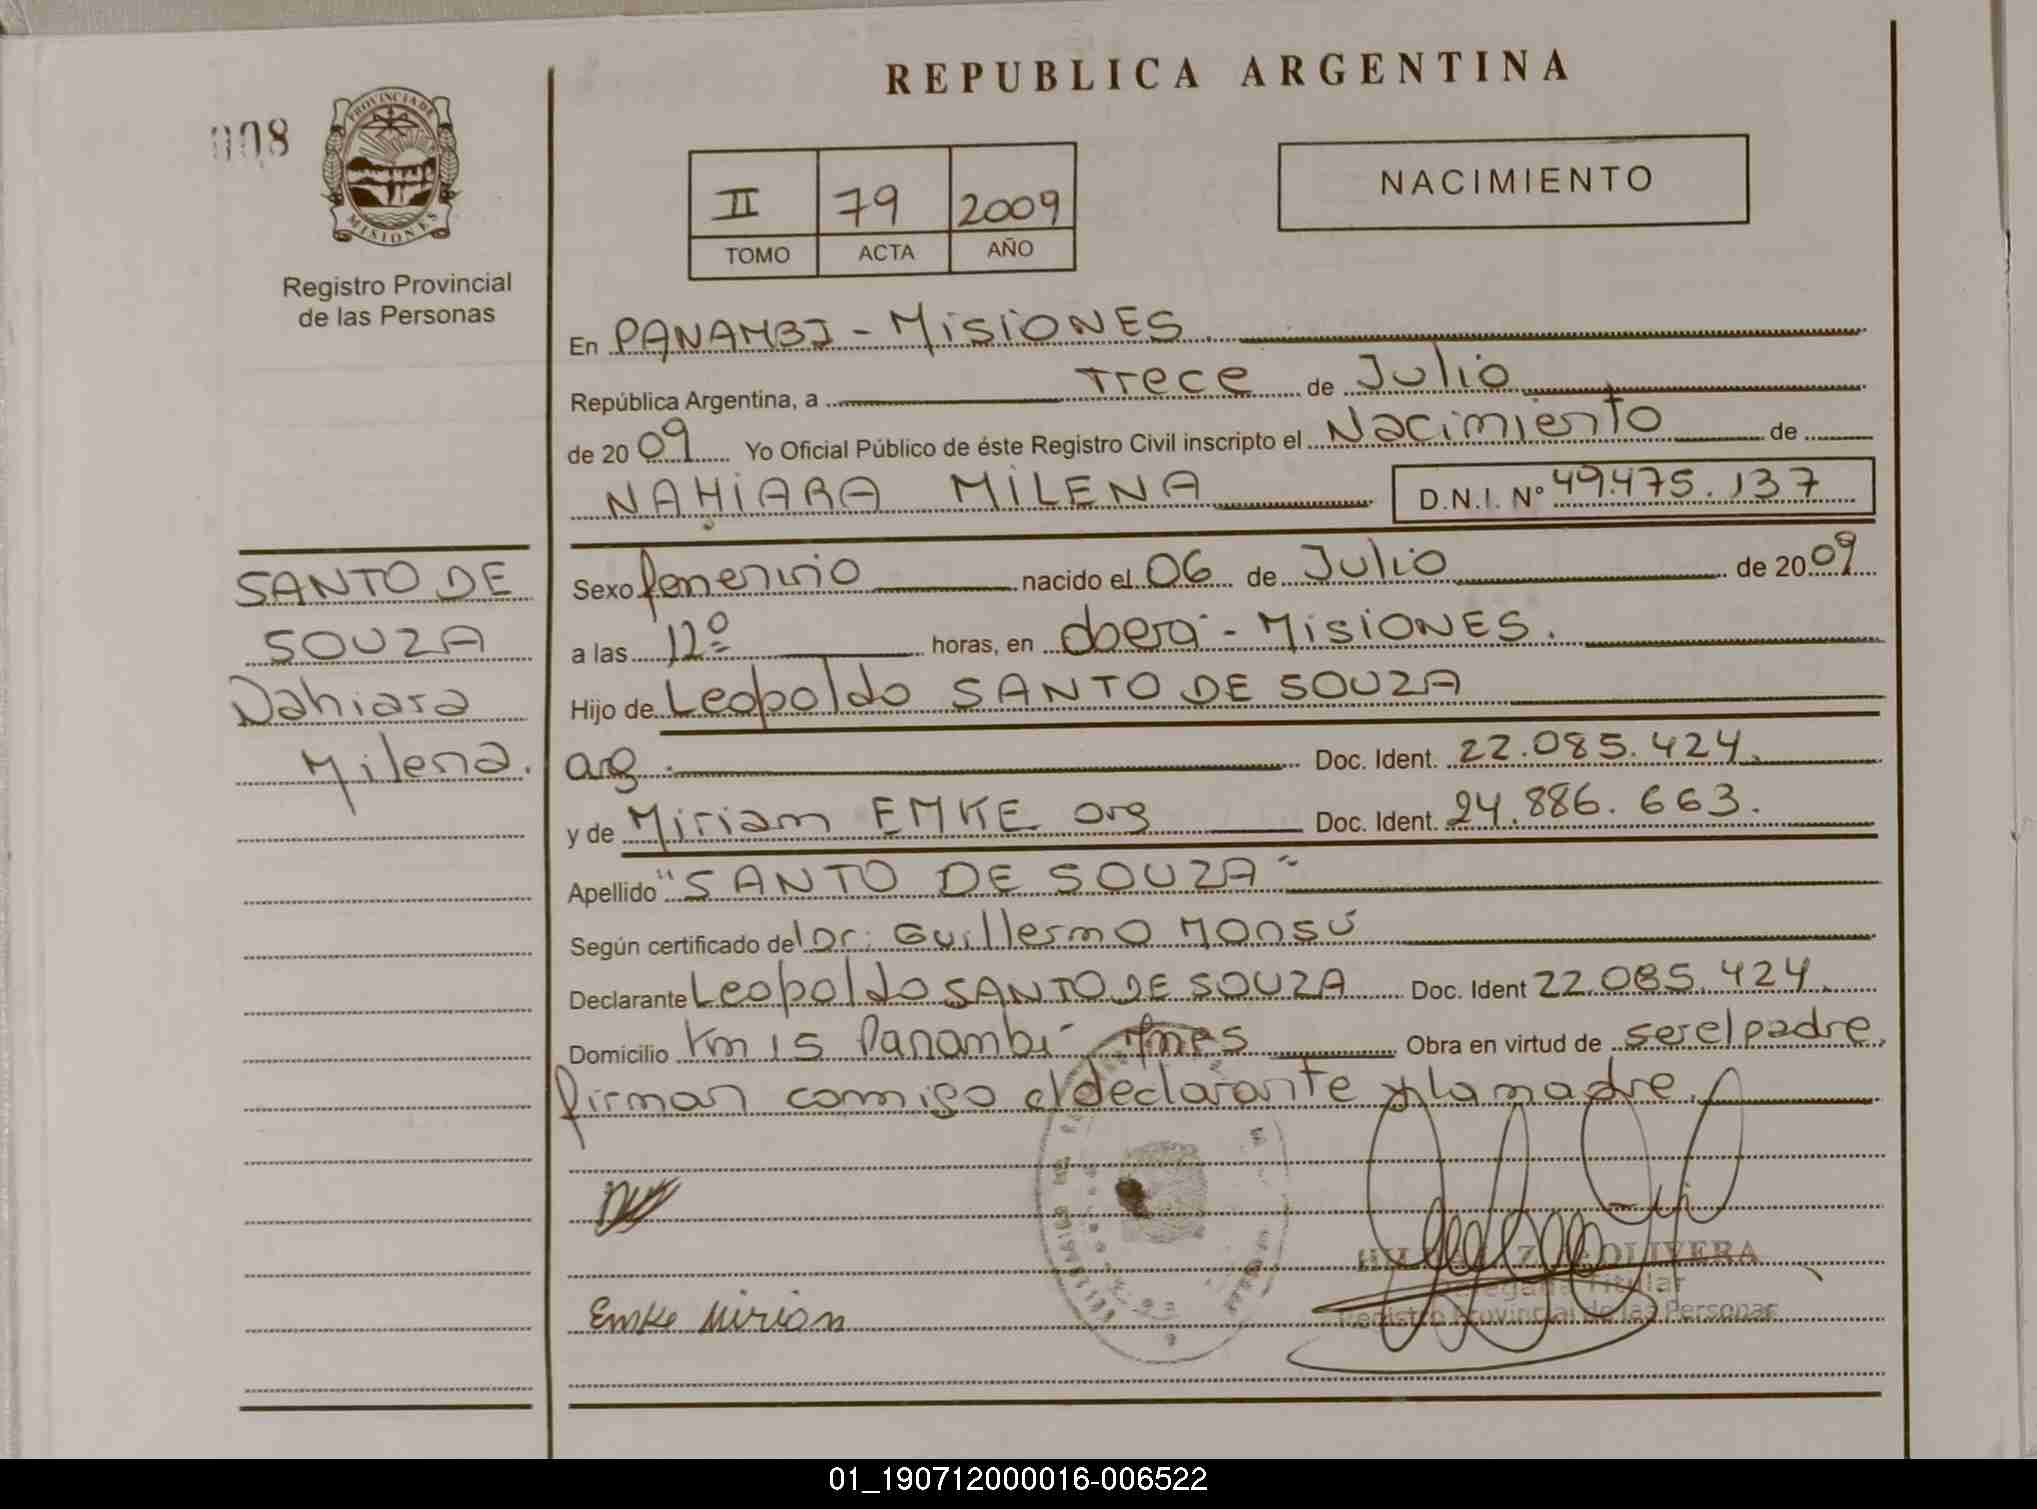 REPUBLICA ARGENTINA
008
PROVINCIA DE
MISIONES
Registro Provincial
de las Personas
II 79 2009
TOMO ACTA AÑO
NACIMIENTO
En PANAMBI - MISIONES
República Argentina, a Trece de Julio
de 2009 Yo Oficial Público de éste Registro Civil inscripto el Nacimiento de
NAHIARA MILENA D.N.I. Nº 49.475.137
SANTO DE
SOUZA
Nahiara
Milena.
Sexo femenino nacido el 06 de Julio de 2009
a las 12º horas, en Oberá - MISIONES.
Hijo de Leopoldo SANTO DE SOUZA
arg. Doc. Ident. 22.085.424.
y de Miriam EMKE arg Doc. Ident. 24.886.663.
Apellido "SANTO DE SOUZA"
Según certificado del Dr. Guillermo MONSÚ
Declarante Leopoldo SANTO DE SOUZA Doc. Ident 22.085.424.
Domicilio Km 15 Panambi - Mnes Obra en virtud de ser el padre,
firman conmigo el declarante y la madre.
OLIVERA
Titular
Registro Provincial de las Personas
Emke Mirian
01_190712000016-006522